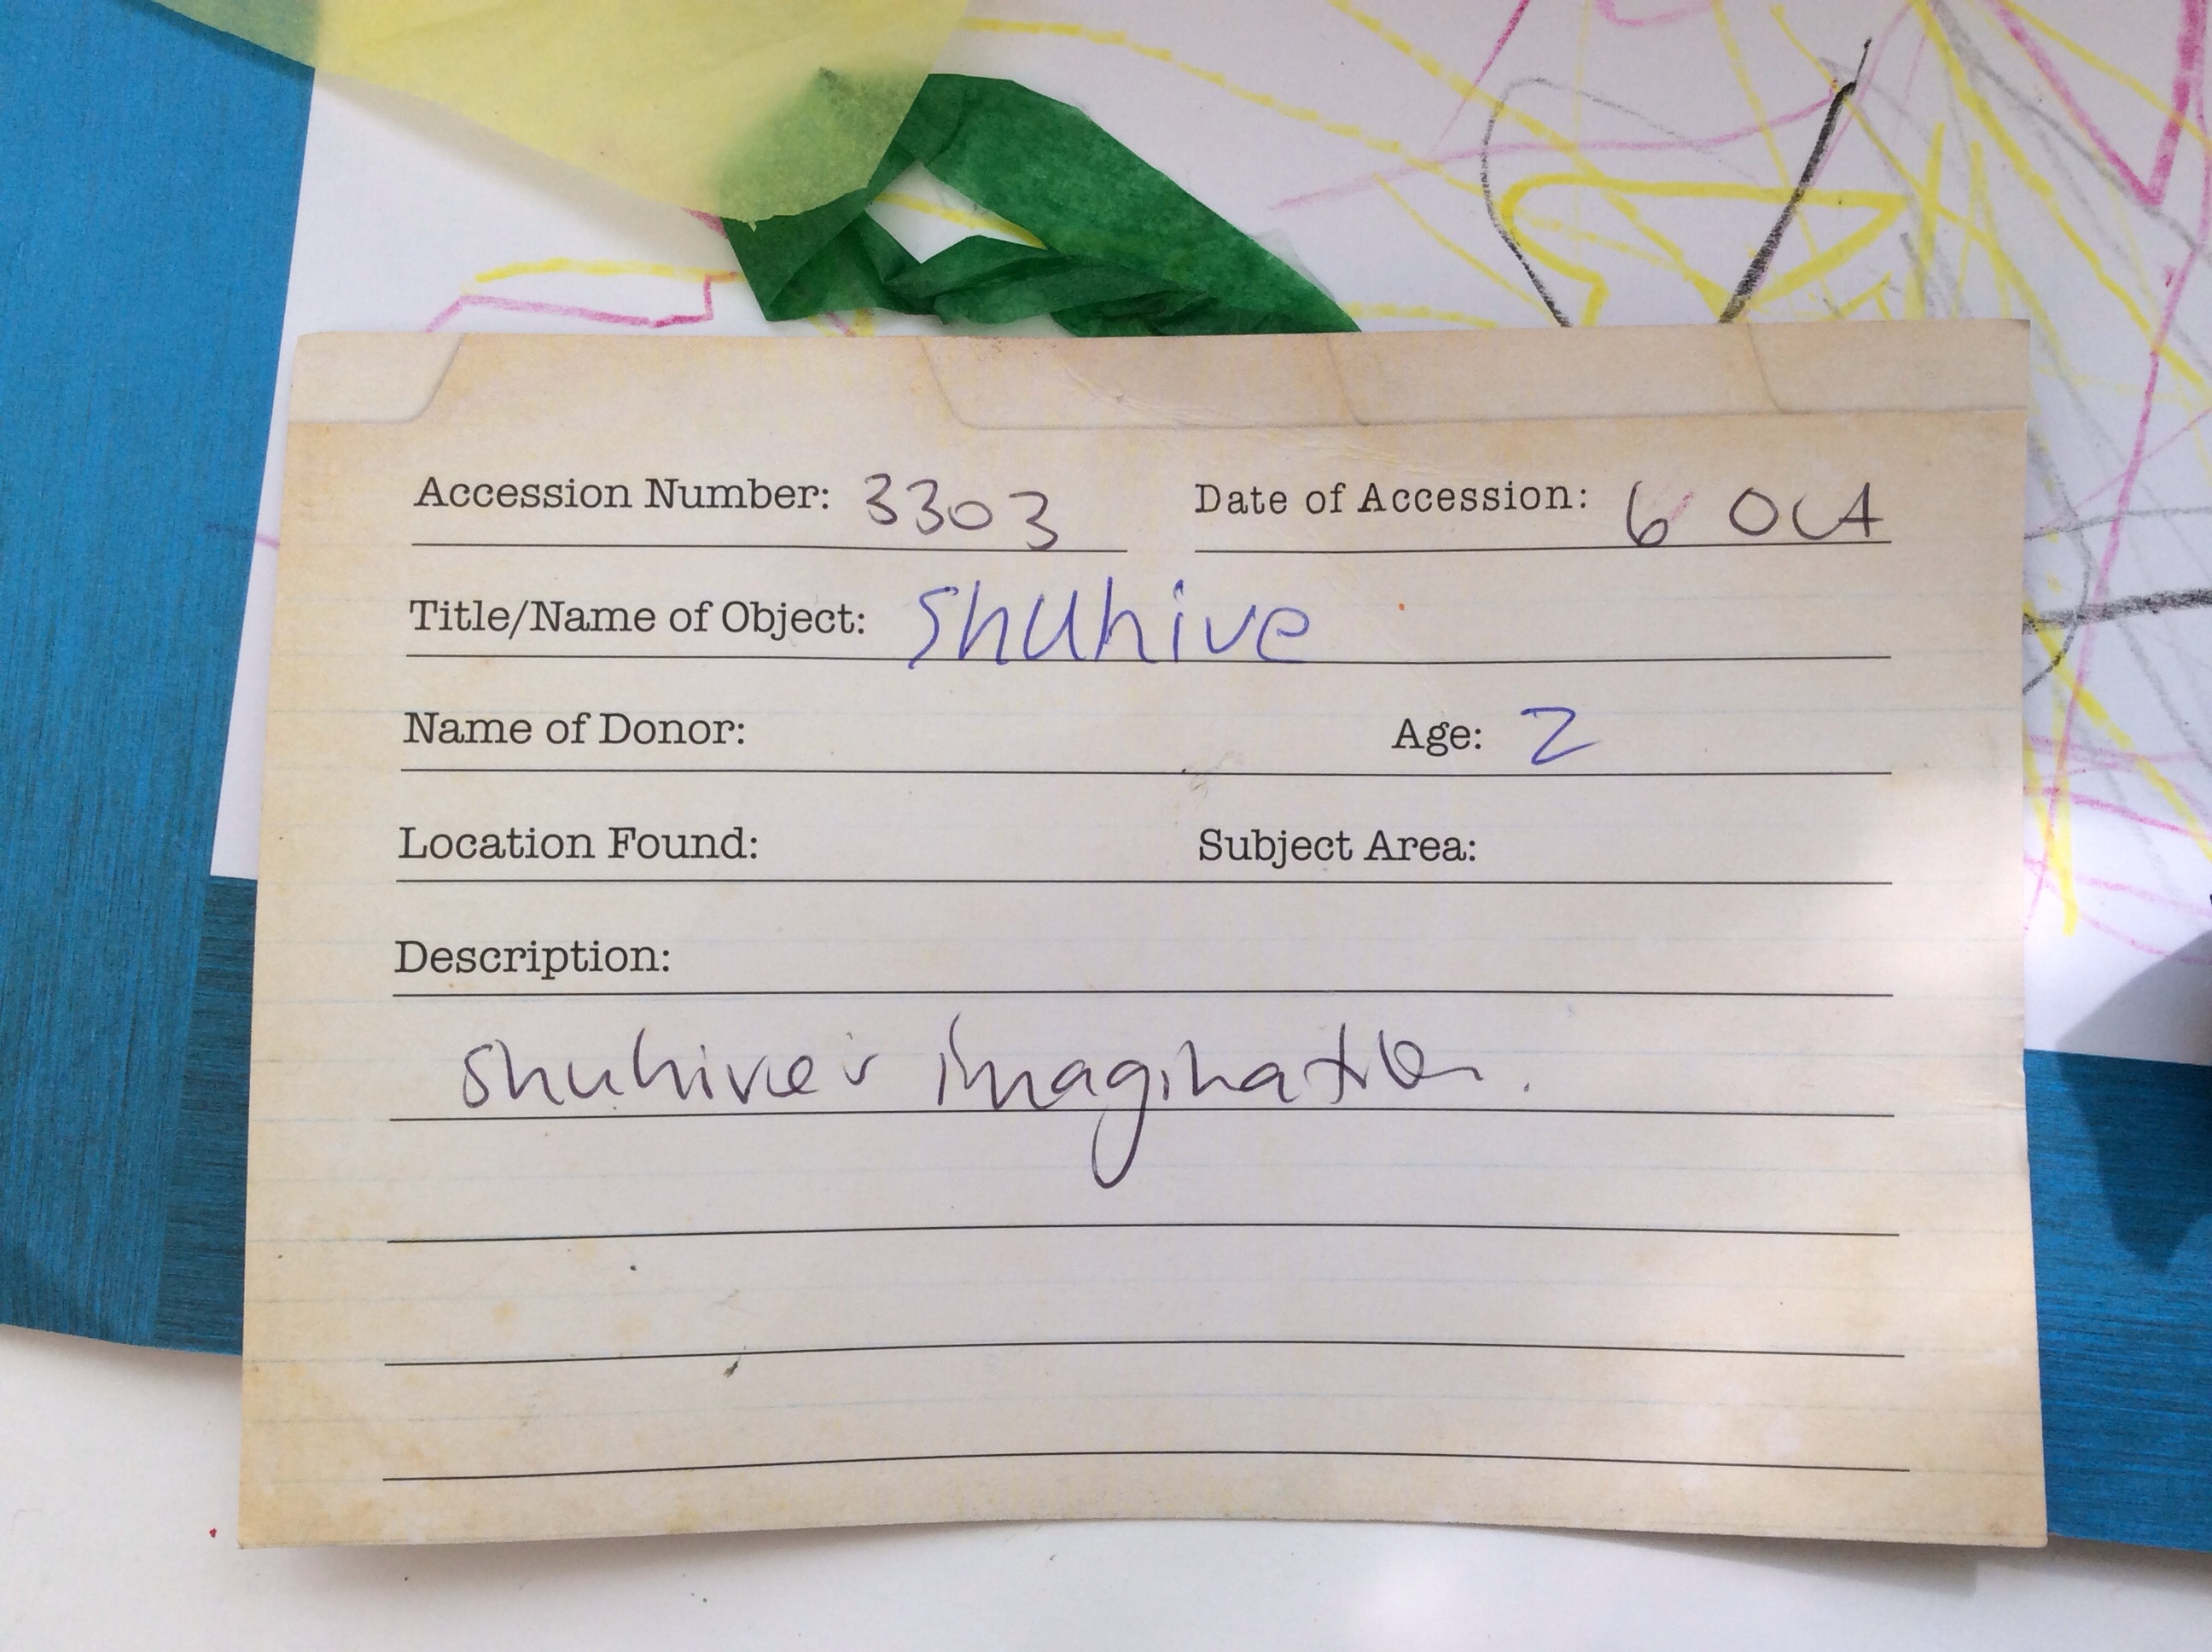 Accession Number: 3303 Date of Accession: 6 Oct
Title/Name of Object: Shuhive
Name of Donor: Age: 2
Location Found: Subject Area:
Description:
Shuhive's imagination.